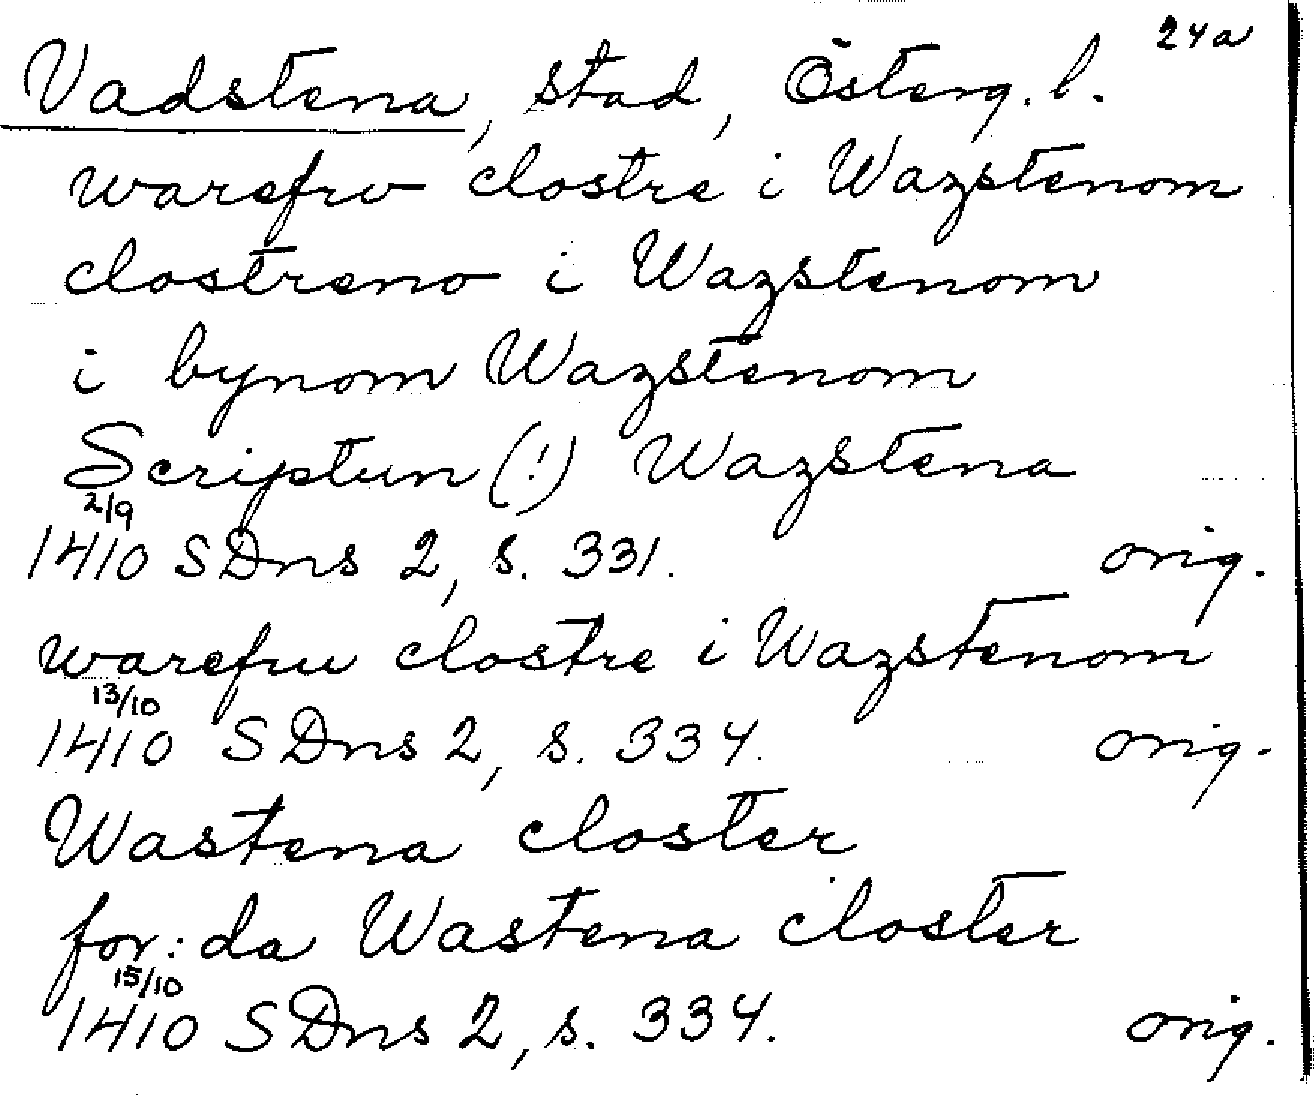 24a
Vadstena, stad, Österg. l.
warefrv clostre i Wazstenom
clostreno i Wazstenom
i bynom Wazstenom
Scriptun (!) Wazstena
2/9
1410 SDns 2, s. 331. orig.
warefru clostre i Wazstenom
13/10
1410 SDns 2, s. 334. orig.
Wastena closter
for:da Wastena closter
15/10
1410 SDns 2, s. 334. orig.